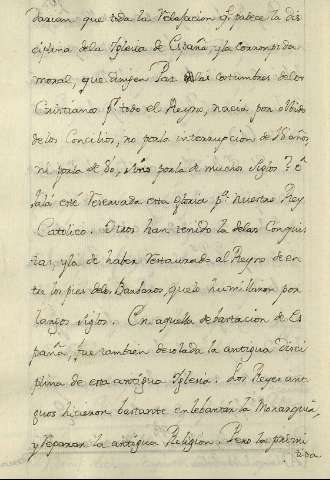 darian, que toda la relaxacion q.e padece la dis
ciplina de la Iglesia de España, y la corrompida
moral, que influyen las costumbres de los
Cristianos p.r todo el Reyno, nacia por olbido
de los Concilios, no por la interrupcion de 18 años,
ni por la de 50, sino por la de muchos siglos? O
jala esté reservada esta gloria p.a nuestro Rey
Catolico. Otros han tenido la de las Conquis
tas, y la de haber restaurado al Reyno de en
tre los pies de los Barbaros, que lo humillaron por
largos siglos. En aquella debastacion de Es
paña, fue tambien desolada la antigua disci
plina de esta antigua Iglesia. Los Reyes anti
guos hicieron bastante en lebantar la Monarquia,
y reparar la antigua Religion. Pero la primi
tiva